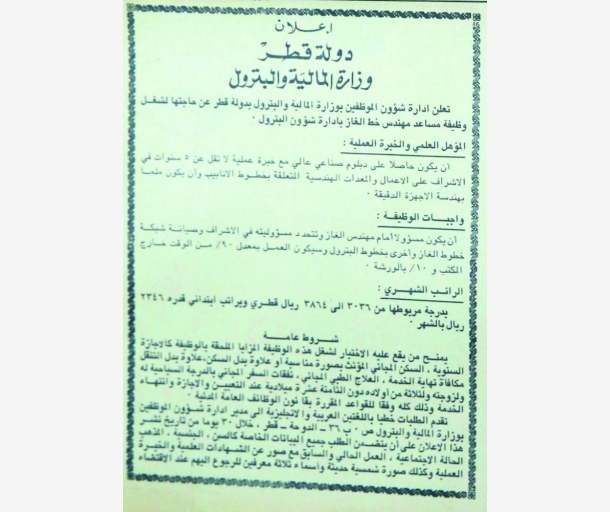 اعلان
دولة قطر
وزارة المالية والبترول
تعلن ادارة شؤون الموظفين بوزارة المالية والبترول بدولة قطر عن حاجتها لشغل
وظيفة مساعد مهندس خط الغاز بادارة شؤون البترول .
المؤهل العلمي والخبرة العملية :
ان يكون حاصلا على دبلوم صناعي عالي مع خبرة عملية لا تقل عن ٥ سنوات في
الاشراف على الاعمال والمعدات الهندسية المتعلقة بخطوط الانابيب وأن يكون ملما
بهندسة الاجهزة الدقيقة .
واجبات الوظيفة :
ان يكون مسؤولا أمام مهندس الغاز وتتحدد مسؤوليته في الاشراف وصيانة شبكة
خطوط الغاز وأخرى بخطوط البترول وسيكون العمل بمعدل ٩٠٪ من الوقت خارج
المكتب و ١٠٪ بالورشة .
الراتب الشهري :
بدرجة مربوطها من ٣٠٣٦ الى ٣٨٦٤ ريال قطري وبراتب ابتدائي قدره ٢٣٤٦
ريال بالشهر .
شروط عامة
يمنح من يقع عليه الاختيار لشغل هذه الوظيفة المزايا الملحقة بالوظيفة كالاجازة
السنوية ، السكن المجاني المؤثث بصورة مناسبة أو علاوة بدل السكن،علاوة بدل التنقل
مكافأة نهاية الخدمة ، العلاج الطبي المجاني ، نفقات السفر المجاني بالدرجة السياحية له
ولزوجته وثلاثة من أولاده دون الثامنة عشرة ميلادية عند التعيين والاجازة وانتهاء
الخدمة وذلك كله وفقا للقواعد المقررة بقانون الوظائف العامة المدنية .
تقدم الطلبات خطيا باللغتين العربية والانجليزية الى مدير ادارة شؤون الموظفين
بوزارة المالية والبترول ص . ب ٣٦ ـ الدوحة ـ قطر ، خلال ٣٠ يوما من تاريخ نشر
هذا الاعلان على أن يتضمن الطلب جميع البيانات الخاصة كالسن ، الجنسية ، المذهب
الحالة الاجتماعية ، العمل الحالي والسابق مع صور عن الشهادات العلمية والخبرة
العملية وكذلك صورة شمسية حديثة وأسماء ثلاثة معرفين للرجوع اليهم عند الاقتضاء